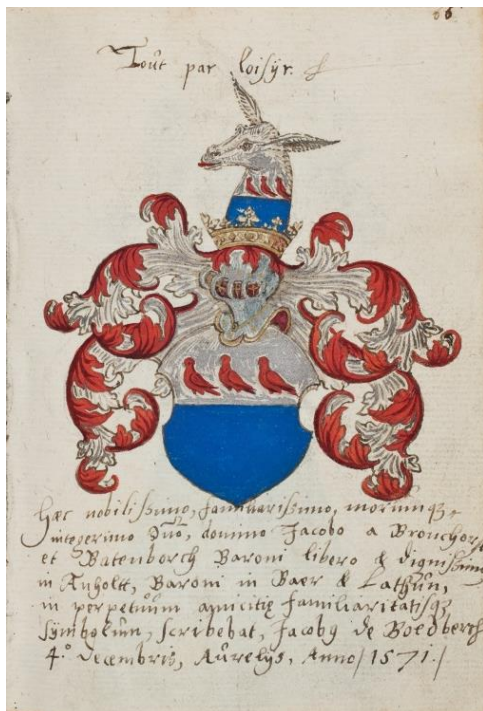 66
Tout par loisÿr.
Hæc nobilissimo, familiarissimo, morumq̨
integerimo Dn̄o, domino Jacobo a Bronchor
et Batenborch Baroni libero & dignissimo
in Anholtt, Baroni in Baer & Lathūn,
in perpetūūm amicitię familiaritatisq̨
sÿmbolūm, scribebat, Jacobg de Boedberch
4.º decembris, Aūrelijs, Anno/1571./